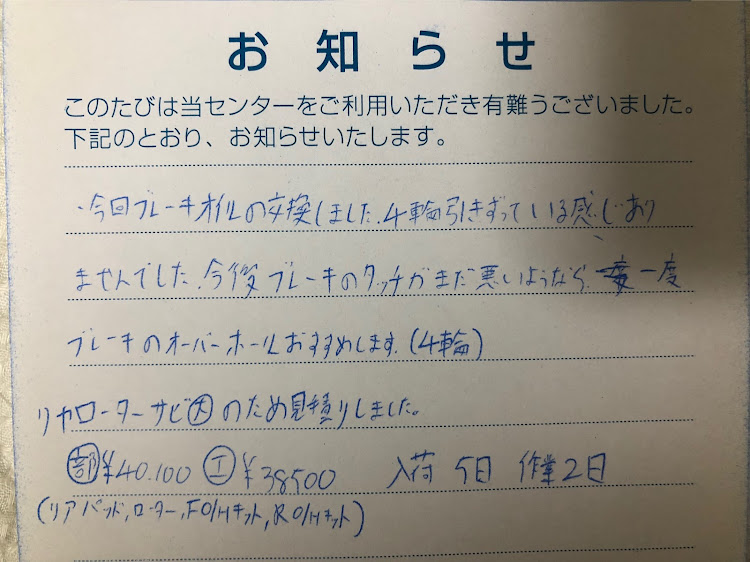 お知らせ
このたびは当センターをご利用いただき有難うございました。
下記のとおり、お知らせいたします。
・今回ブレーキオイルの交換しました。4輪引きずっている感じあり
ませんでした。今後ブレーキのタッチがまだ悪いようなら、一度
ブレーキのオーバーホールおすすめします。(4輪)
リヤローターサビ大のため見積りしました。
部¥40.100 工¥38500 入荷 5日 作業2日
(リアパッド,ローター,FO/Hキット,RO/Hキット)